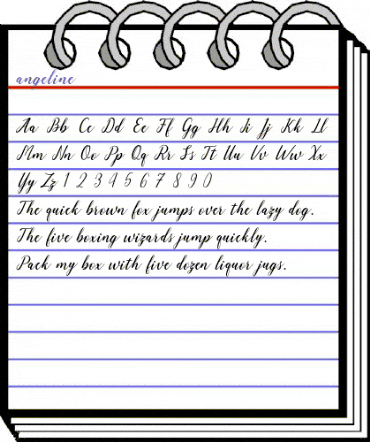 angeline
Aa Bb Cc Dd Ee Ff Gg Hh Ii Jj Kk Ll
Mm Nn Oo Pp Qq Rr Ss Tt Uu Vv Ww Xx
Yy Zz 1 2 3 4 5 6 7 8 9 0
The quick brown fox jumps over the lazy dog.
The five boxing wizards jump quickly.
Pack my box with five dozen liquor jugs.